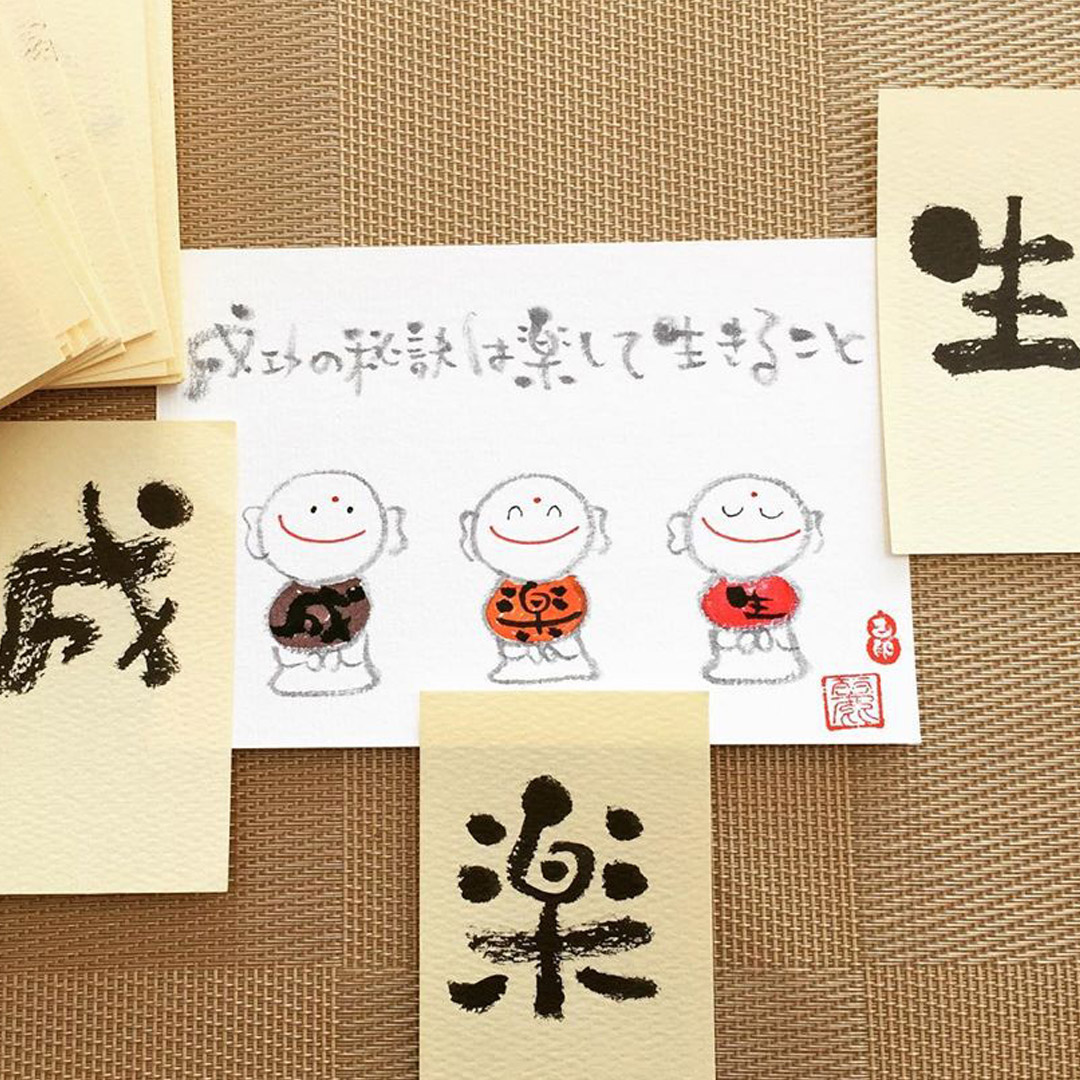 成功の秘訣は楽して生きること
成
楽
生
成
楽
生